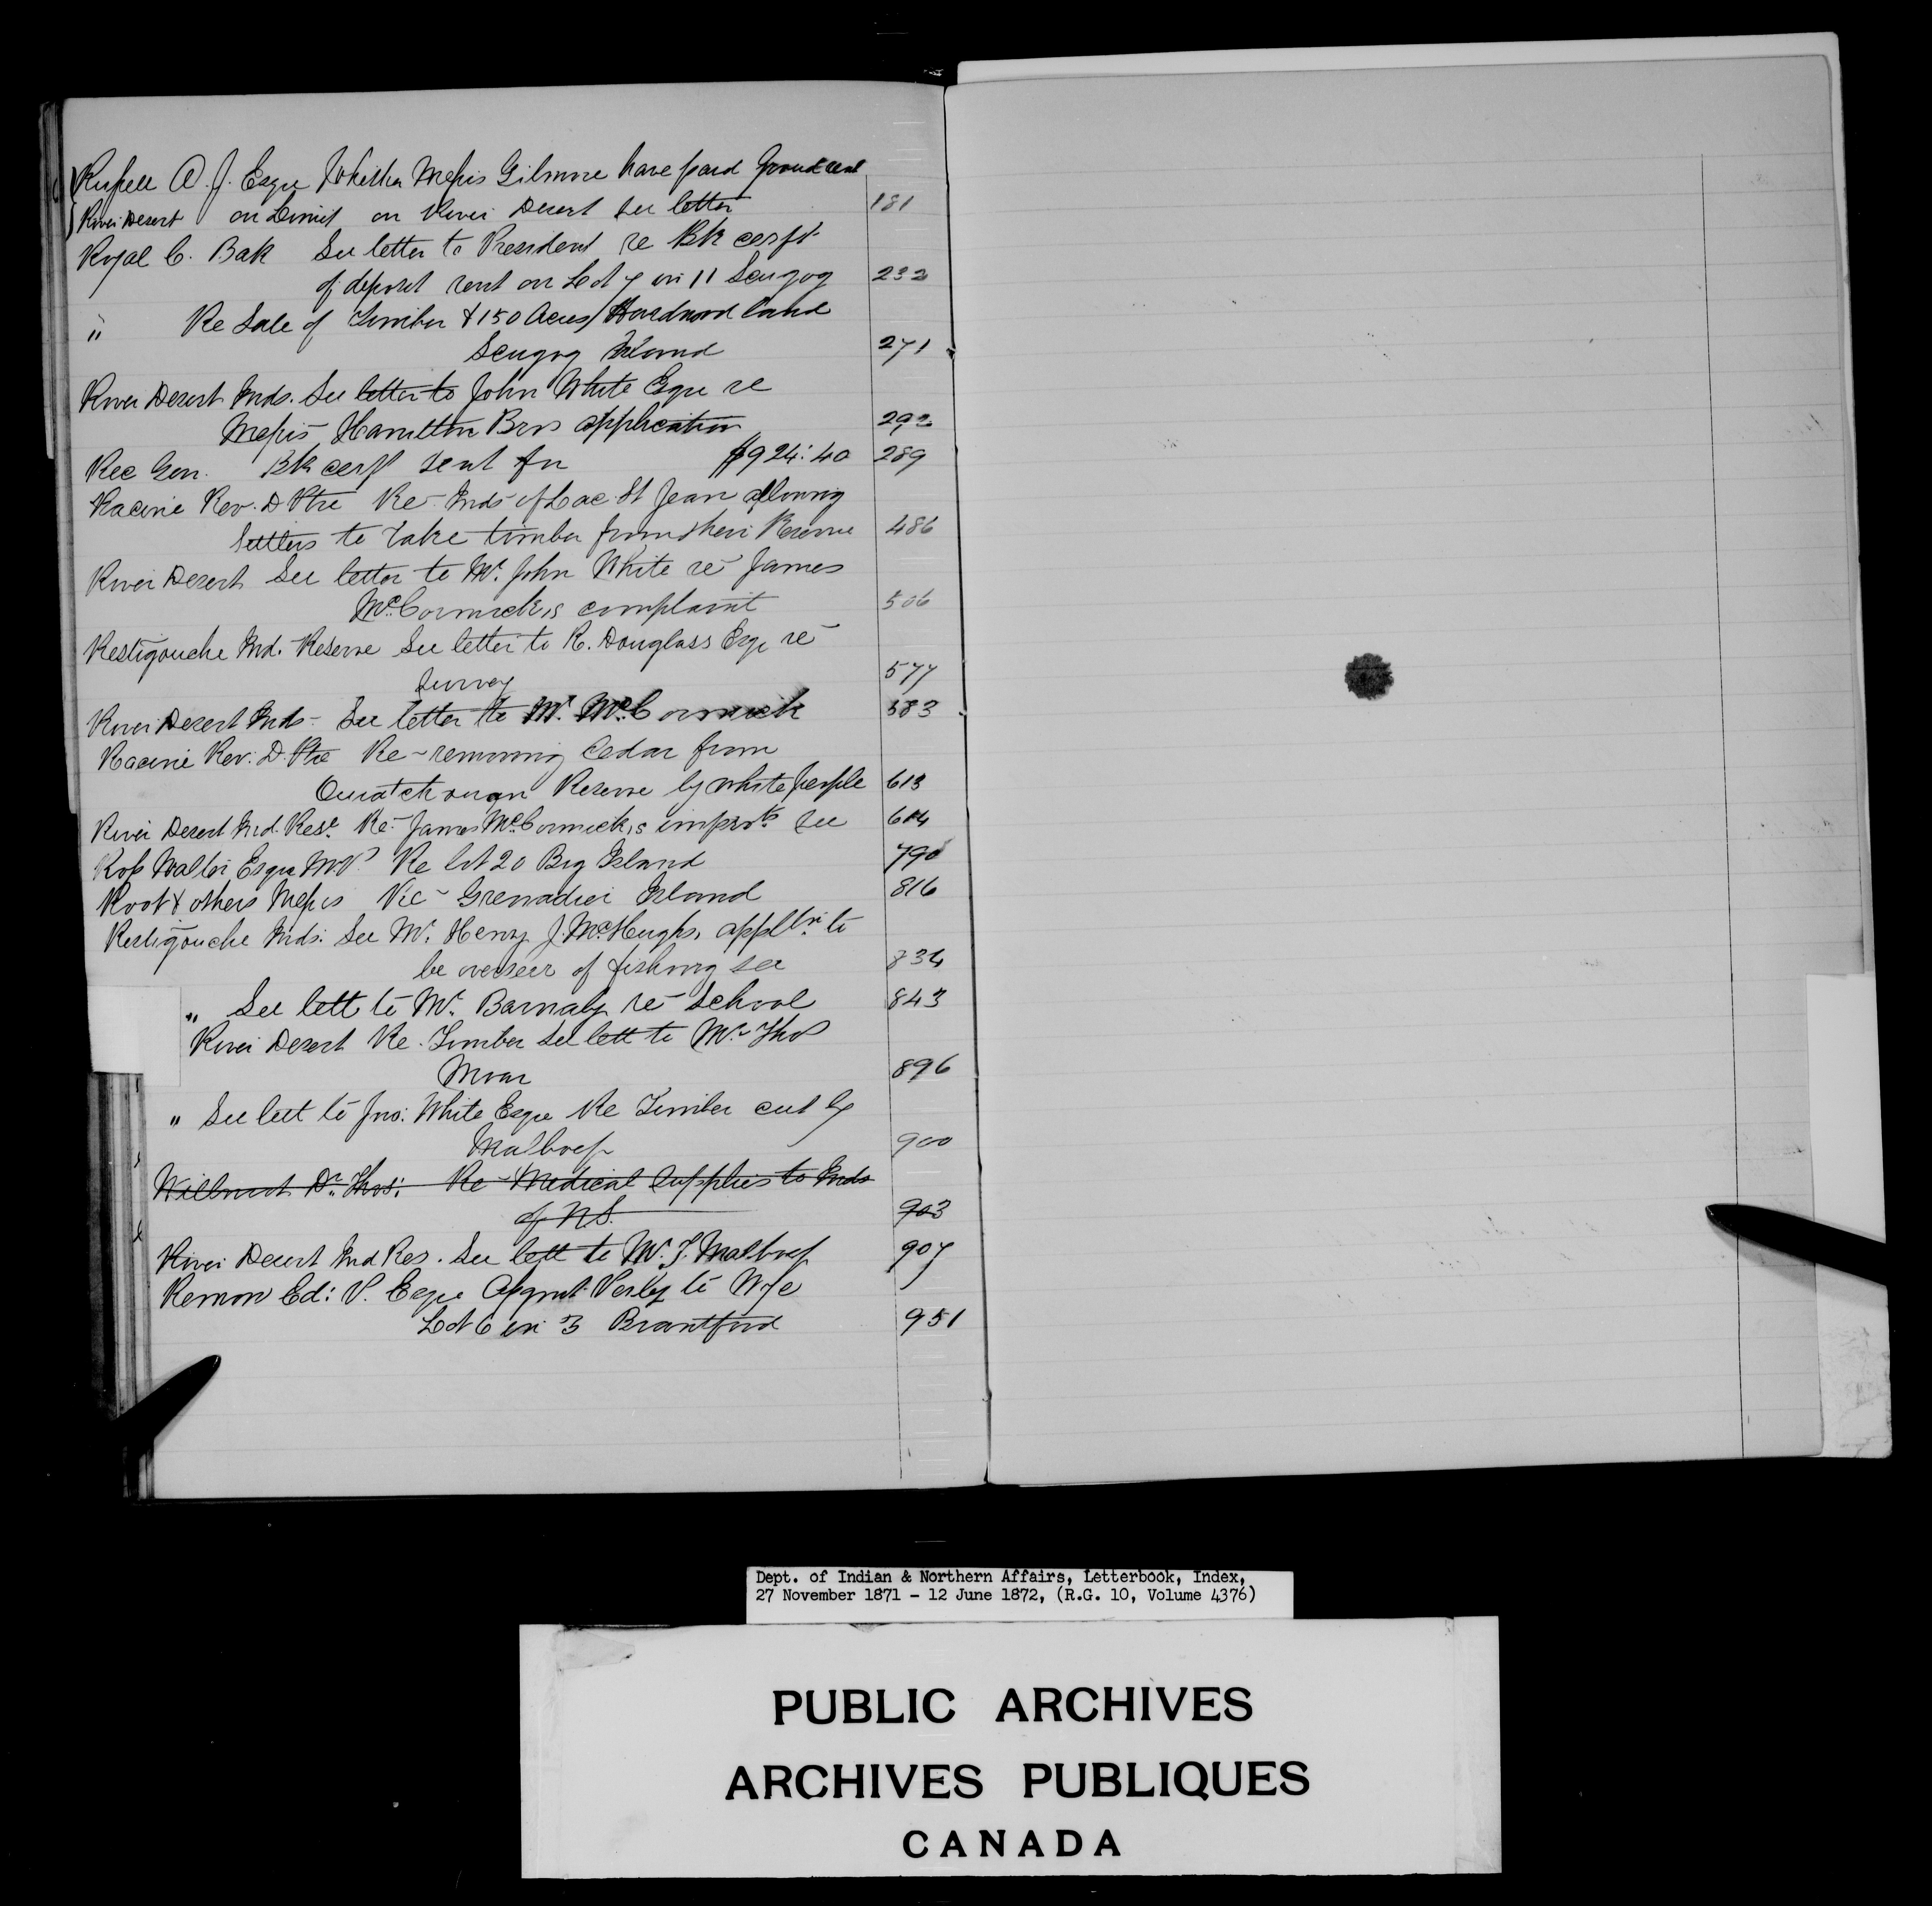 Russell A. J. Esqre Whether Messrs Gilmore have paid Ground rent
River Desert on Limit on River Desert See letter 181
Royal C. Bak See letter to President re Bk certft
of deposit rent on Lot 7 in 11 Scugog 232
" Re Sale of Timber & 150 Acres Hardwood land
Scugog Island 271
River Desert Inds. See letter to John White Esqre re
Messrs Hamilton Bros application 292
Rec Gen. Bk certft sent for $924.40 289
Racine Rev. D Ptre Re Inds of Lac St Jean allowing
Settlers to take timber from their Reserve 486
River Desert See letter to Mr. John White re James
McCormick's complaint 506
Restigouche Ind. Reserve See letter to R. Douglass Esqr re
Survey 577
River Desert Inds - See letter to Mr. McCormick 583
Racine Rev. D. Ptre Re - removing Cedar from
Ouiatchouan Reserve by white people 613
River Desert Ind. Rese. Re - James McCormick's improts. See 614
Ross Walter Esqre M.P. Re lot 20 Big Island 790
Root & others Messrs Re - Grenadier Island 816
Restigouche Inds: See Mr. Henry J. McHughs, applln to
be overseer of fishing see 834
" See lett to Mr. Barnaby re School 843
River Desert Re. Timber See lett to Mr. Thos
Moar 896
" See lett to Jno: White Esqre Re Timber cut by
Malboef 900
Willmot Dr. Thos: Re - Medical Supplies to Inds
of N.S. 903
River Desert Ind Res. See lett to Mr. J. Malboef 907
Remon Ed: V. Esqre Asgmt. Verley to Wye
Lot 6 in 3 Brantford 951
Dept. of Indian & Northern Affairs, Letterbook, Index,
27 November 1871 - 12 June 1872, (R.G. 10, Volume 4376)
PUBLIC ARCHIVES
ARCHIVES PUBLIQUES
CANADA